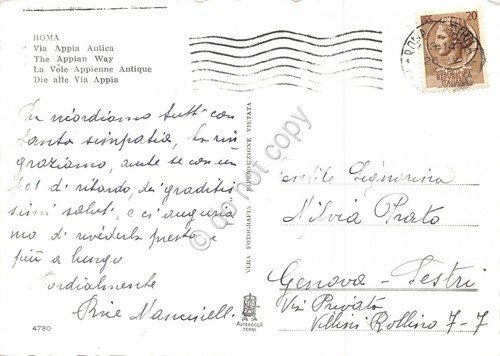 ROMA
Via Appia Antica
The Appian Way
La Voie Appienne Antique
Die alte Via Appia
20
La ricordiamo tutti con
tanta simpatia, La rin
graziamo, anche se con un
po' di ritardo, dei graditis
simi saluti, e ci auguria
mo di rivederla presto e
più a lungo
Cordialmente
Mancinelli
4780
VERA FOTOGRAFIA - RIPRODUZIONE VIETATA
ALTEROCCA
TERNI
do not copy
Gentile Signorina
Silvia Prato
Genova - Sestri
Via Privata
Villini Rollino 7-7